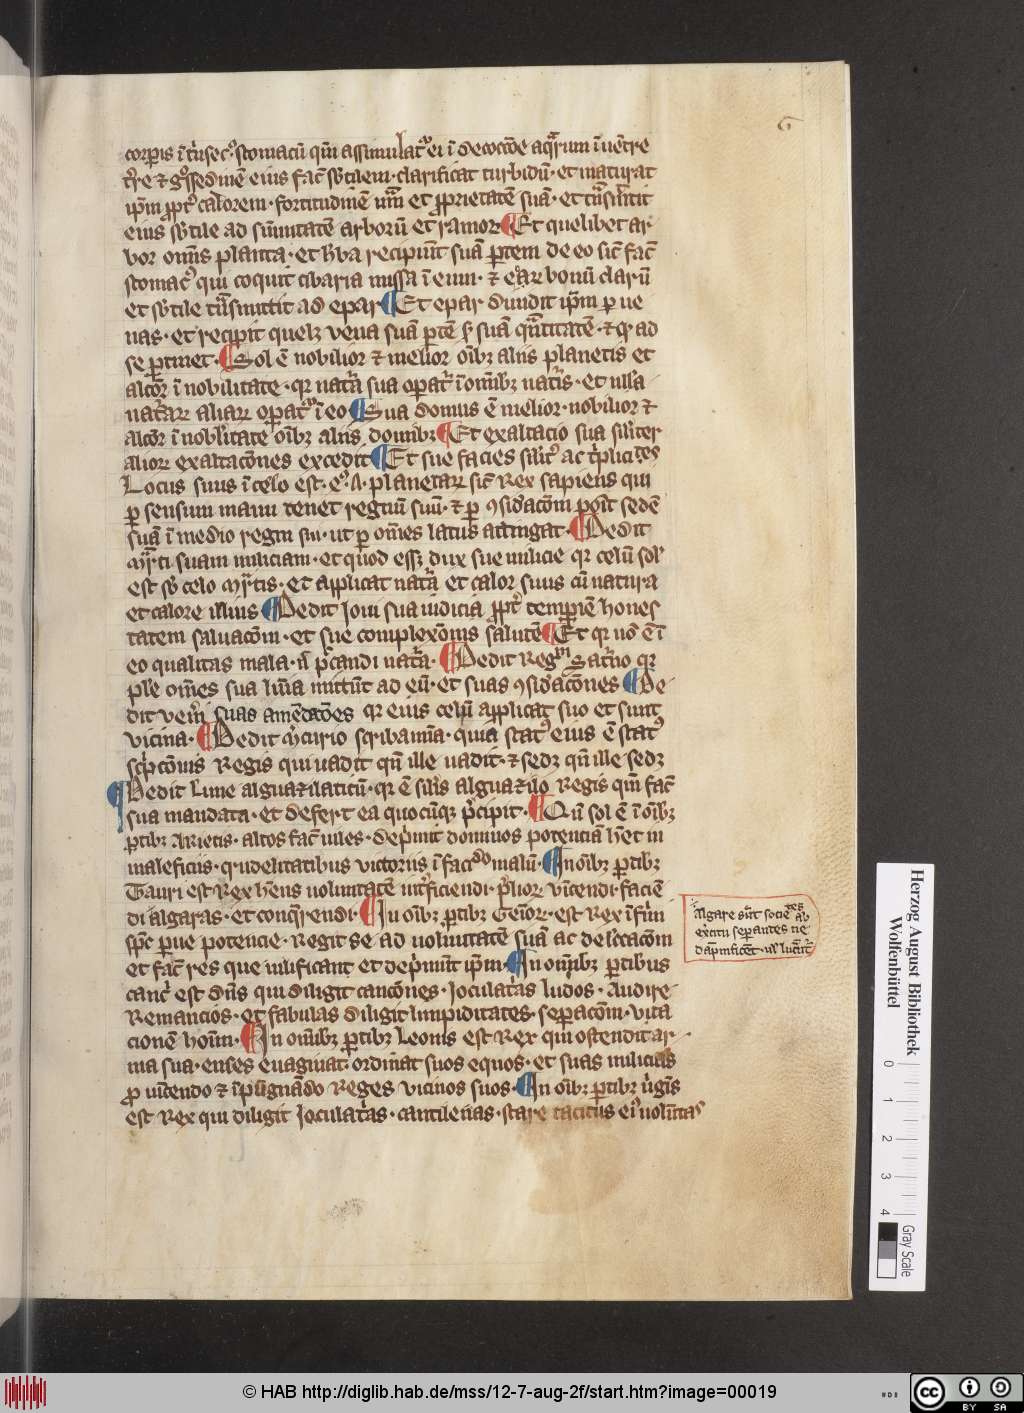 6
corꝑis ĩ tͥnsecꝰ stomacũ qm̃ assimulatᷣ ei ĩ decoctõe aqᷓrum ĩ uẽtre
tͬre ⁊ gͦssedinẽ eius fac̃ sƀtilem · clarificat turbidũ · et maturat
ip̃m ꝓpt̾ calorem · fortitudinẽ et ꝓprietatẽ suã · et tᷓnsmittit
eius sƀtile ad sũmitatẽ arborũ et ramoꝝ ¶ Et quelibet ar
bor om̃is planta · et h̾ba recipiũt suã ꝑtem de eo sic̃ fac̃
stomacꝰ qui coquit cibaria missa ĩ eum · ⁊ bonũ clarũ
et sƀtile tᷓnsmittit ad epar ¶ Et epar diuidit ip̃m ꝑ ue
nas · et recipit quelꝫ uena suã ꝑtẽ suã qᷓntitatẽ · ⁊ qͦ ad
se ꝑtinet · ¶ Sol ẽ nobilior ⁊ melior oĩbꝫ aliis planetis et
alcõr ĩ nobilitate · qr natᷓ sua oꝑatᷣ ĩ om̃ibꝫ natᷓis · et nlła
natᷓaꝝ aliaꝝ oꝑatᷣ ĩ eo ¶ Sua domus ẽ melior · nobilior ⁊
alcõr ĩ nobłitate oĩbꝫ aliis domibꝫ ¶ Et exaltacio sua silit̾er
alioꝝ exaltacõnes excedit ¶ Et sue facies silit̾ ac tͥplicites
Locus suus ĩ celo est · planetaꝝ sic̃ Rex sapiens qui
ꝑ sensum manu tenet regnũ suũ · ⁊ ꝑ ꝯsid̾acõm ponit sedẽ
suã ĩ medio regni sui · ut ꝑ om̃es latus attingat · ¶ Dedit
Mᷓrti suam miliciam · et quod essꝫ dux sue milicie qr celũ sol
est sƀ celo Mᷓrtis · et applicat natᷓ et calor suus cũ natura
et calore illius ¶ Dedit Ioui sua iudicia ꝓpt̾ temp̃iẽ hones
tatem saluacõm · et sue complexõnis salutẽ ¶ Et qr nõ ẽ ĩ
eo qualitas mala · nͨ p̃candi natᷓ · ¶ Dedit Regnũ Satᷣno qr
ple om̃es sua lum̃a mittũt ad eũ · et suas ꝯsid̾acõnes ¶ De
dit ven̾i suas amẽdacões qr eius celũ applicat suo et sunt
vicina · ¶ Dedit M̾curio scribaniã · quia statꝰ eius ẽ statꝰ
sc̾pcõnis Regis qui uadit qñ ille uadit · ⁊ sedꝫ qñ ille sedꝫ
¶ Dedit Lune alguazilaticũ · qr ẽ silis alguazilo Regis qm̃ fac̃
sua mandata · et defert ea quocũqꝫ p̃cipit · ¶ Qñ sol ẽ ĩ oĩbꝫ
ꝑtibꝫ Arietis · altos fac̃ uiles · dep̃mit dominos potenciã hẽt in
maleficiis · crudelitatibus victoriis ĩ faciẽdo malũ · ¶ In oĩbꝫ ꝑtibꝫ
Tauri est Rex hñs uoluntatẽ int̾ficiendi · p̃lioꝝ vĩcendi · faciẽ
di algaras · et conqͥrendi · ¶ In oĩbꝫ ꝑtibꝫ Gem̃oꝝ · est Rex ĩfirmi
paruę potencie · Regit se ad uolũtatẽ suã ac delectacõm
et fac̃ res que iulificant et dep̃mũt ip̃m · ¶ In om̃ibꝫ ꝑtibus
canc̾ est dñs qui diligit cancõnes · Joculat̾as ludos · Audire
Remancios · et fabulas diligit limpiditates · seꝑacõm · vita
cionẽ hoĩm · ¶ In om̃ibꝫ ꝑtibꝫ Leonis est Rex qui ostendit ar
ma sua · enses euaginat · ordinat suos equos · et suas milicias
ꝓ vĩcendo ⁊ ĩpũgnãdo Reges vicinos suos · ¶ In oĩbꝫ ꝑtibꝫ v̾gĩs
est Rex qui diligit Joculat̾as · cantilenas · stare tacitus eiꝰ uolũtas
Algare sũt societates
ab exͬcitu seꝑantes ne
lucrẽtᷣ
Herzog August Bibliothek
Wolfenbüttel
0 1 2 3 4
Gray Scale
© HAB http://diglib.hab.de/mss/12-7-aug-2f/start.htm?image=00019
cc BY SA